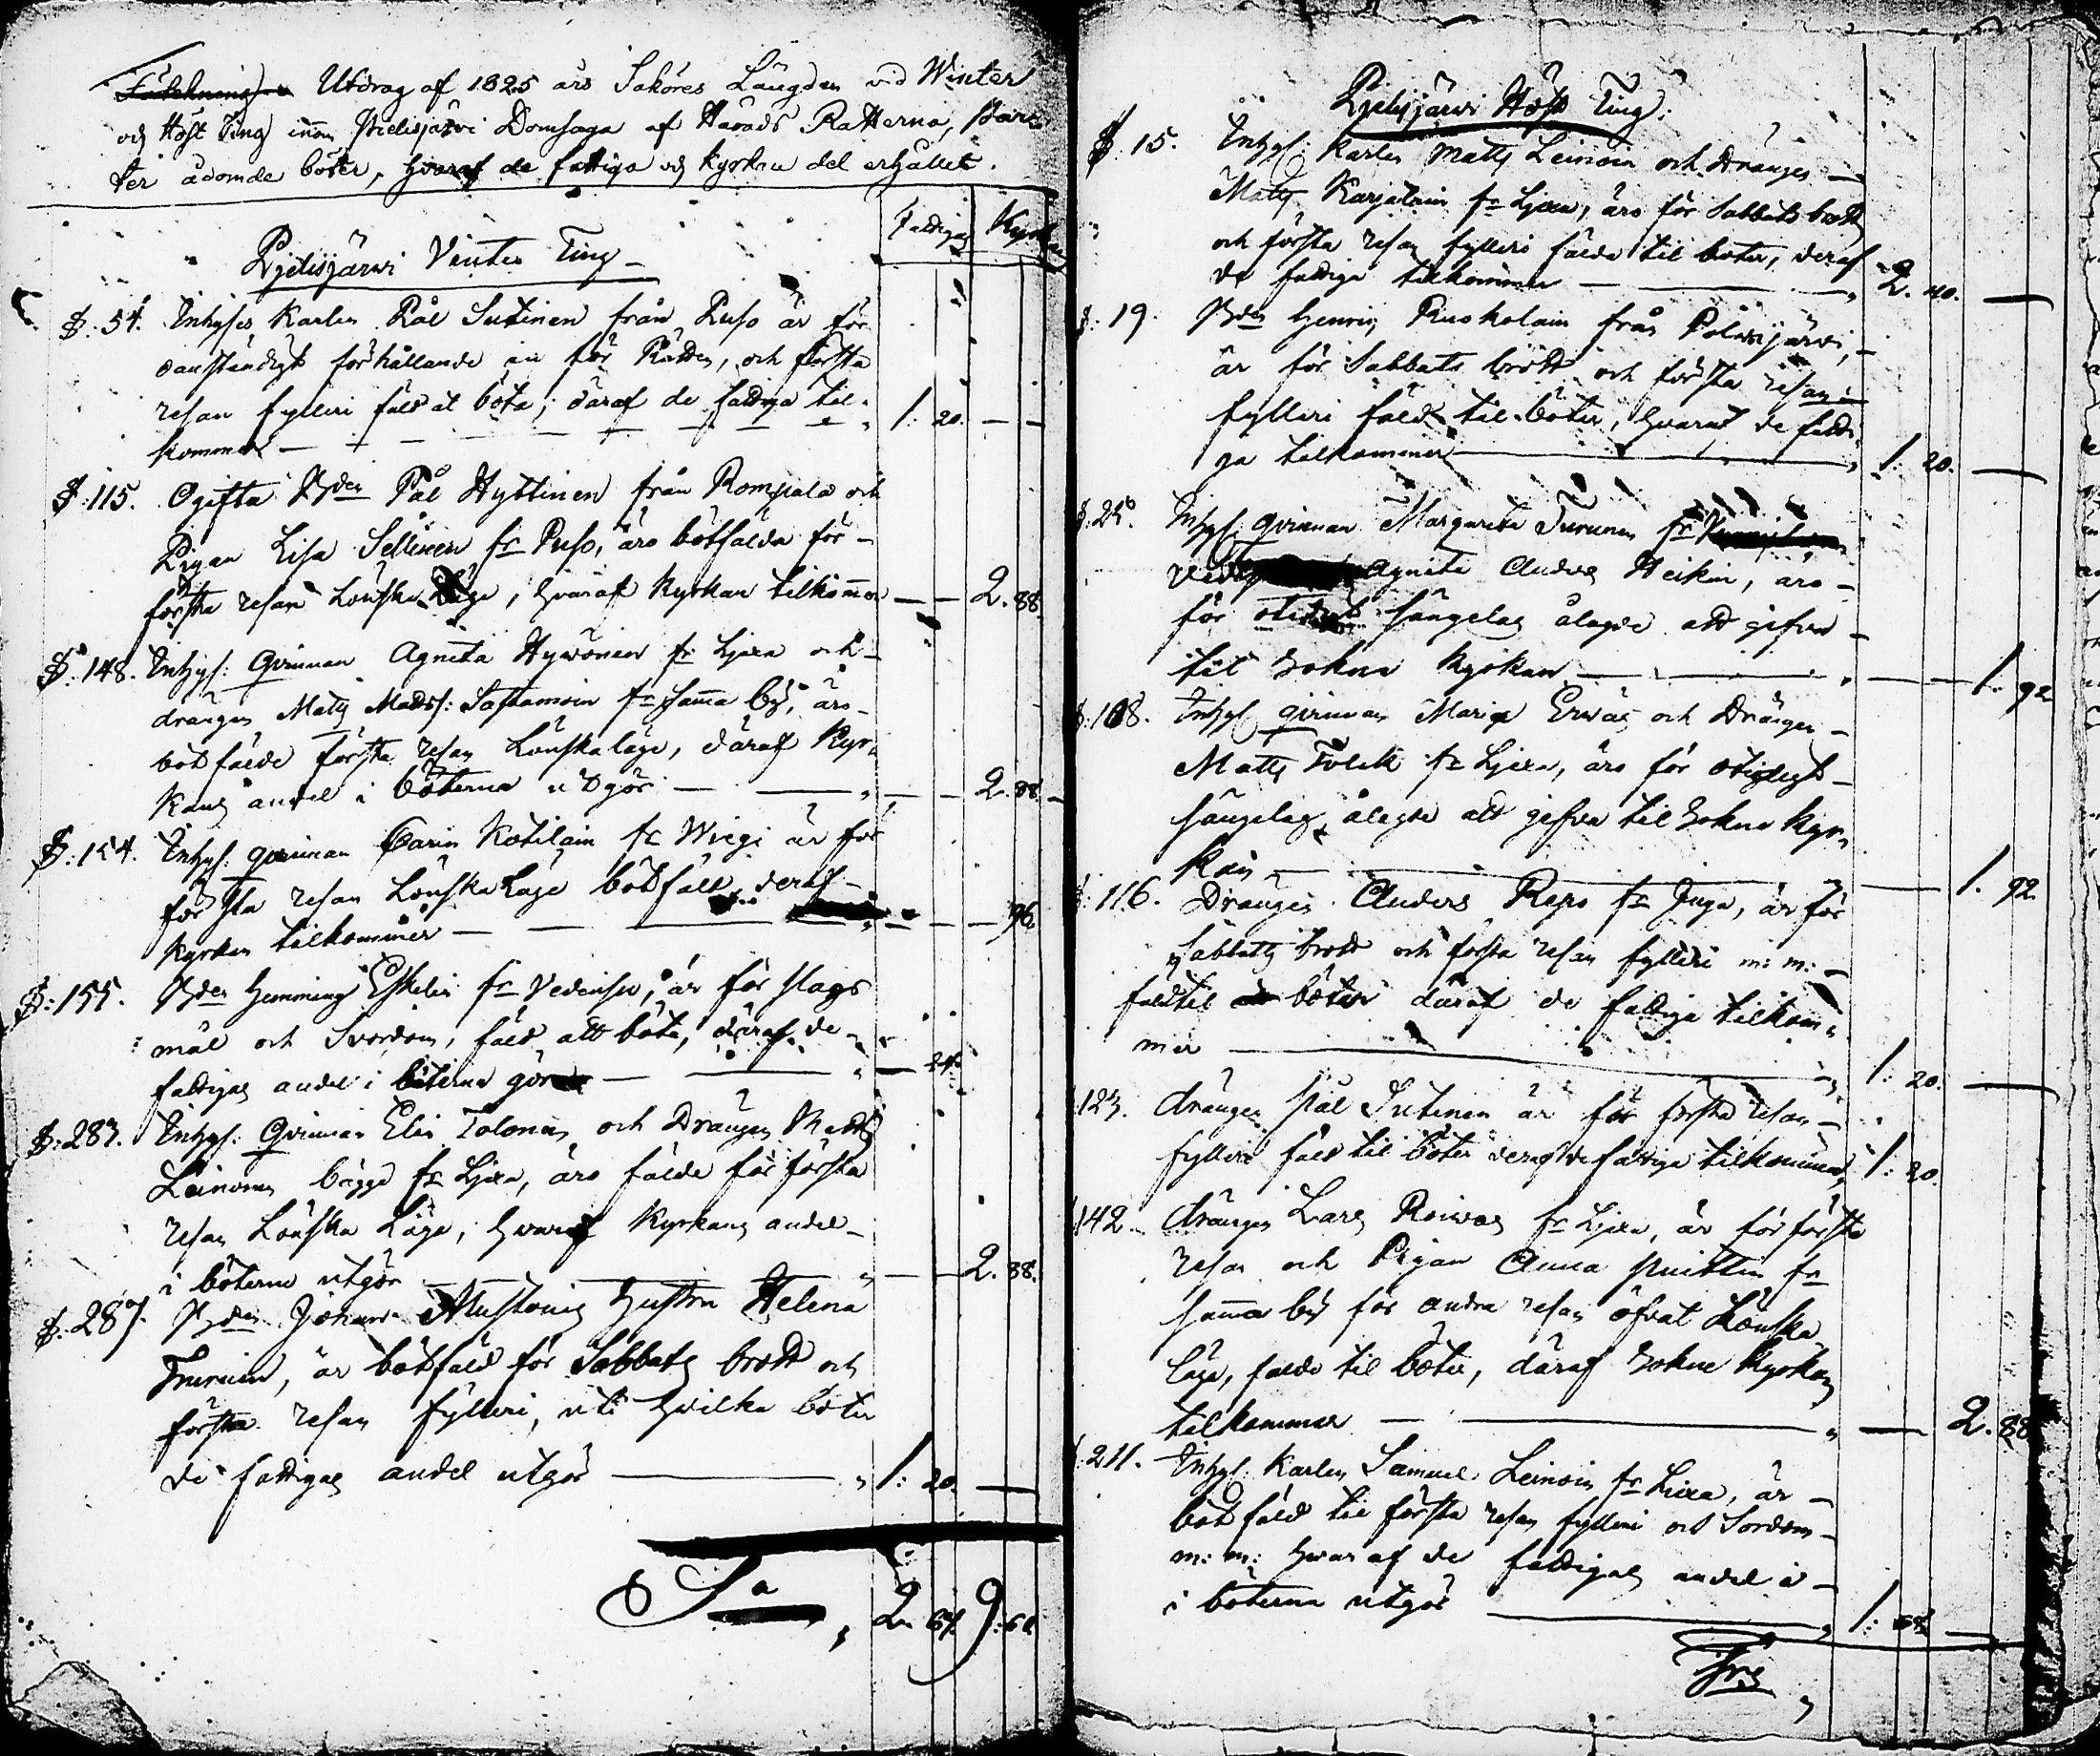 Utdrag af 1825 års Saköres Längden vid Winter
och Höst Ting innom Pielisjärvi Domsaga af Härads Rätterna, Par-
ter ådömde böter, hvaraf de fattiga och kyrkan del erhållet.
Fattiga Kyrkan
Pjelisjärvi Vinter Ting
§: 54. Inhyses Karlen Pål Sutinen från Puso är för
oanständigt förhållande in för Rätten, och första
resan fylleri fäld at böta; däraf de fattiga til-
kommer 1: 20.
§: 115. Ogifta Bden Pål Hyttinen från Rompala och
Pigan Lisa Sellinen fr Puso, äro bötfälda för
första resan Lönska Läge, hvaraf Kyrkan tilkommer 2. 88.
§: 148. Inhys: qvinnan Agneta Hyvönen fr Ljexa och
drängen Matts Matss: Sastamoin fr samma by, äro
bötfälde första resan Lönskaläge, däraf Kyr-
kans andel i böterna utgör 2. 88.
§: 154. Inhys: qvinnan Carin Kotilain fr Wiegi är för
första resan Lönska Läge bötfäld, deraf
Kyrkan tilkommer 96.
§: 155. Bden Hemming Eskelin fr Vedensu, är för slags
mål och Svordom, fäld att böta, däraf de
fattigas andel i böterna gör 24.
§: 283. Inhys: Qvinnan Elin Tolonen och Drängen Matts
Leinonen bägge fr Ljexa, äro fälde för första
resan Lönska Läge, hvaraf Kyrkans andel
i böterna utgör 2. 88.
§: 287. Bden Johan Mustonens hustru Helena
Turuin, är bötfäld för Sabbats brott och
första resan fylleri, uti hvilka böter
de fattigas andel utgör 1: 20.
Sa 2. 64. 9: 60.
Pjelisjärvi Höst Ting.
§. 15. Inhys: Karlen Matts Leinoin och Drängen
Matts Karjalain fr Ljexa, äro för Sabbats brott
och första resan fylleri fälda til böter, deraf
de fattiga tilkommer 2. 40.
§. 19. Bden Henric Ruokolain från Polvijärvi,
är för Sabbats brott och första resan
fylleri fäld til böter, hvaraf de fatti-
ga tilkommer 1: 20.
§. 25. Inhys: qvinnan Margareta Turunen fr
Agneta Anders Heikin, äro
för otidigt sängelag ålagde att gifva
til Sokne Kyrkan 1. 92
§: 108. Inhys: qvinnan Maria Ervas och Drängen
Matts Tolck fr Ljexa, äro för otidigt
sängelag, ålagde att gifva til Sokne Kyr-
kan 1. 92.
§: 116. Drängen Anders Repo fr Juga, är för
Sabbats brott och första resan fylleri m: m:
fäld til böter däraf de fattiga tilkom-
mer 1: 20.
123. drängen Pål Sutinen är för första resan
fylleri fäld til böter deraf de fattiga tilkommer 1: 20.
142. drängen Lars Roivas fr Ljexa, är för första
resan och Pigan Anna Puittin fr
samma by för andra resan öfvat Lönska
läge, fälde til böter, däraf Sokne Kyrkan
tilkommer 2. 88
211. Inhys: Karlen Samuel Leinoin fr Lixa, är
böt fäld til första resan fylleri och Sordom
m: m: hvar af de fattigas andel i
i böterna utgör 1: